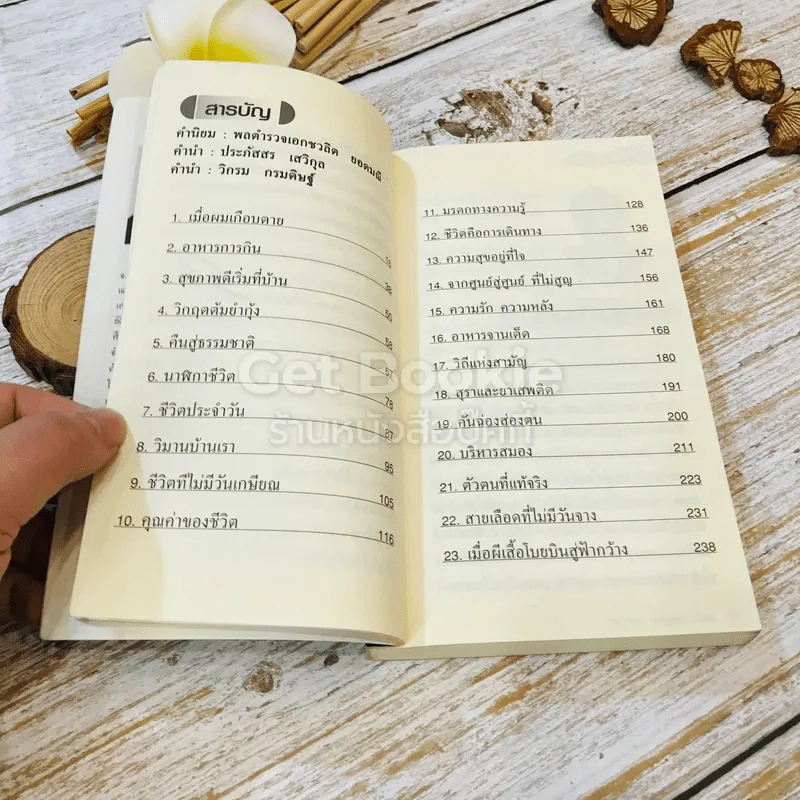 สารบัญ
คำนิยม : พลตำรวจเอกชวลิต ยอดมณี
คำนำ : ประภัสสร เสวิกุล
คำนำ : วิกรม กรมดิษฐ์
1. เมื่อผมเกือบตาย 15
2. อาหารการกิน 38
3. สุขภาพดีเริ่มที่บ้าน 50
4. วิกฤตต้มยำกุ้ง 58
5. คืนสู่ธรรมชาติ 67
6. นาฬิกาชีวิต 78
7. ชีวิตประจำวัน 87
8. วิมานบ้านเรา 95
9. ชีวิตที่ไม่มีวันเกษียณ 105
10. คุณค่าของชีวิต 116
11. มรดกทางความรู้ 128
12. ชีวิตคือการเดินทาง 136
13. ความสุขอยู่ที่ใจ 147
14. จากศูนย์สู่ศูนย์ ที่ไม่สูญ 156
15. ความรัก ความหลัง 161
16. อาหารจานเด็ด 168
17. วิถีแห่งสามัญ 180
18. สุราและยาเสพติด 191
19. คันฉ่องส่องตน 200
20. บริหารสมอง 211
21. ตัวตนที่แท้จริง 223
22. สายเลือดที่ไม่มีวันจาง 231
23. เมื่อผีเสื้อโบยบินสู่ฟ้ากว้าง 238
Get Bookie
ร้านหนังสือบุ๊คกี้